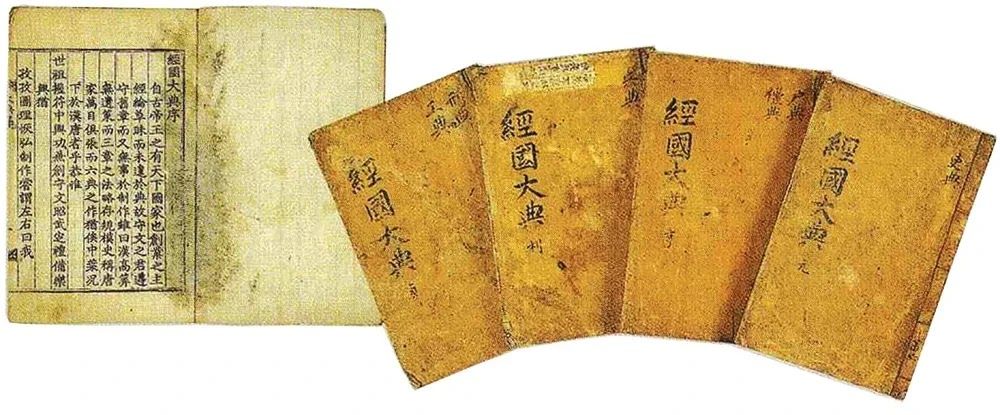 經國大典序
自古帝王之有天下國家也創業之主
經綸草昧而未遑於典故守文之君遵
守舊章而又無事於制作雖曰漢高算
無遺策而三章之法略存規模史稱唐
家萬目俱張而六典之作猶俟中葉況
下於漢唐者乎恭惟
世祖握符中興功兼創守文昭武定禮備樂
興猶
孜孜圖理恢弘制作嘗謂左右曰我
刑典
工典
經國大典 貞
經國大典 利
戶典
禮典
經國大典 亨
吏典
經國大典 元